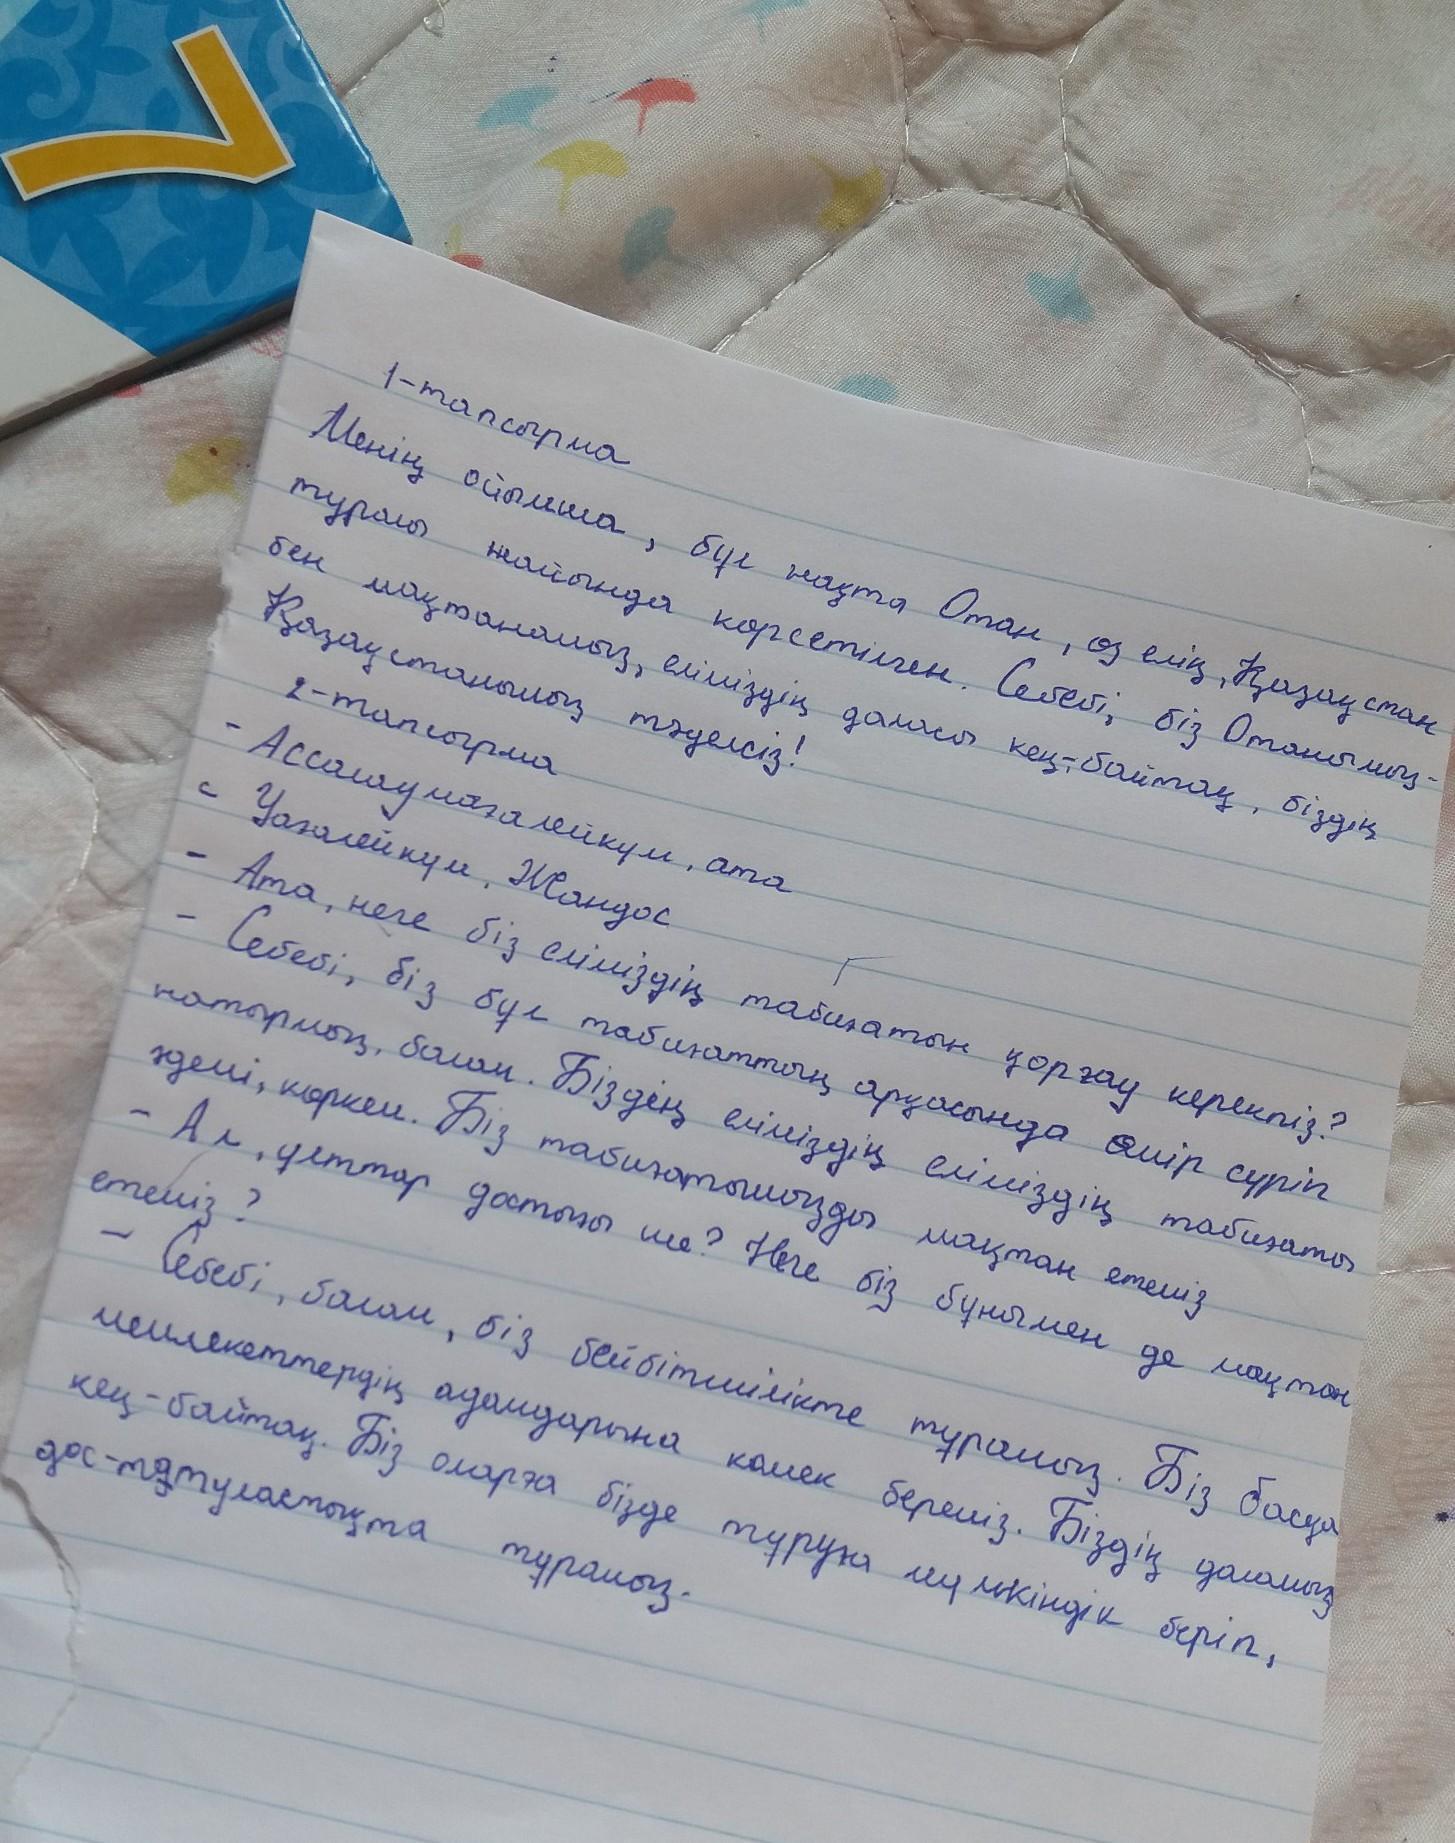 7
1-тапсырма
Менің ойымша, бұл нақта Отан, өз елің, Қазақстан
туралы жайында көрсетілген. Себебі, біз Отанымыз-
бен мақтанамыз, еліміздің даласы кең-байтақ, біздің
Қазақстанымыз тәуелсіз!
2-тапсырма
- Ассалаумағалейкум, ата
- Уағалейкум, Жандос
- Ата, неге біз еліміздің табиғатын қорғау керекпіз?
- Себебі, біз бұл табиғаттың арқасында өмір сүріп
жатырмыз, балам. Біздің еліміздің еліміздің табиғаты
әдемі, көркем. Біз табиғатымызды мақтан етеміз
- Ал, ұлттар достығы ше? Неге біз бұнымен де мақтан
етеміз?
- Себебі, балам, біз бейбітшілікте тұрамыз. Біз басқа
мемлекеттердің адамдарына көмек береміз. Біздің даламыз
кең-байтақ. Біз оларға бізде тұруға мүмкіндік беріп,
дос-тәтуластықта тұрамыз.